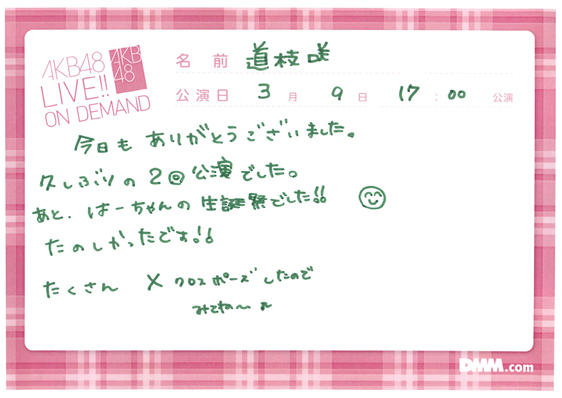 AKB48
LIVE!!
ON DEMAND
AKB
48
名前 道枝咲
公演日 3月9日 17:00 公演
今日も ありがとうございました。
久しぶりの 2回公演でした。
あと、はーちゃんの 生誕祭でした!!
たのしかったです!!
たくさん X クロスポーズしたので
みてね〜♪
DMM.com